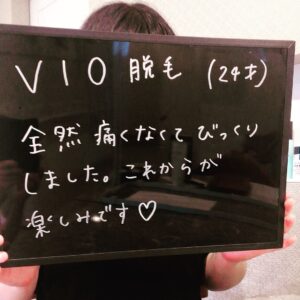 VIO 脱毛 (24才)
全然 痛くなくて びっくり
しました。これからが
楽しみです♡